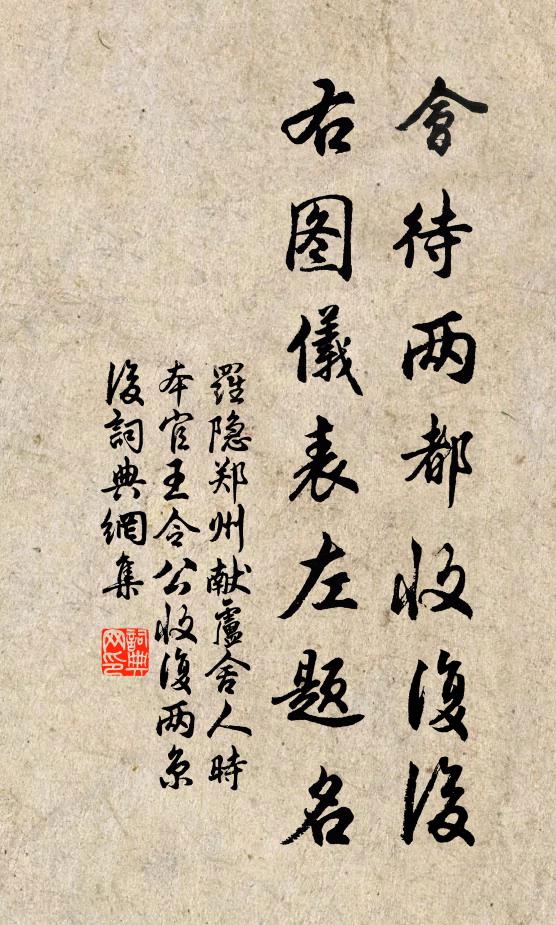 會待两都收復後
右图儀表左题名
羅隐郑州献盧舍人時
本官王令公收復两京
後詞典網集
詞典
网印